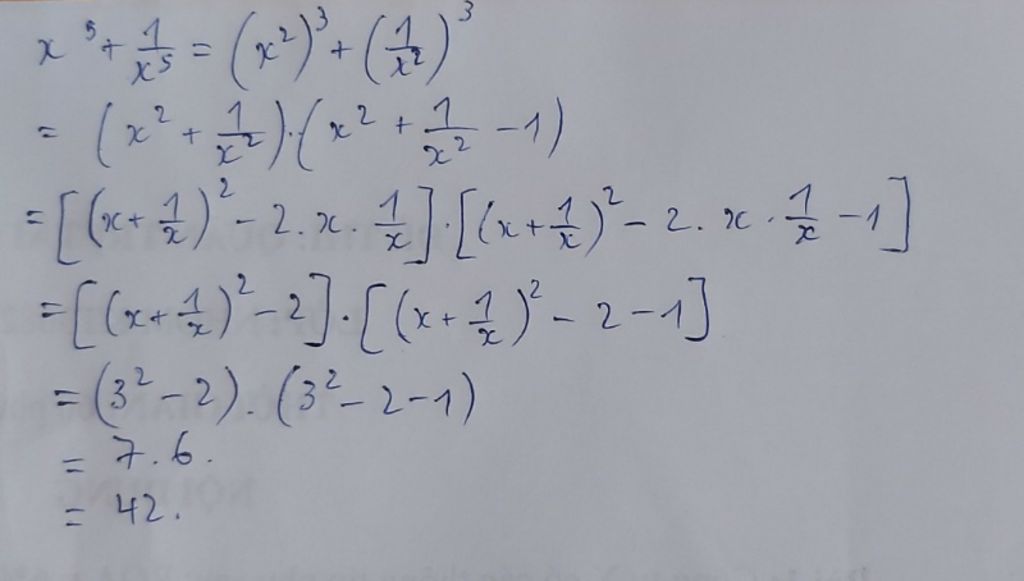 x⁵ + 1/x⁵ = (x²)³ + (1/x²)³
= (x² + 1/x²).(x² + 1/x² - 1)
= [(x + 1/x)² - 2.x.1/x].[(x + 1/x)² - 2.x.1/x - 1]
= [(x + 1/x)² - 2].[(x + 1/x)² - 2 - 1]
= (3² - 2).(3² - 2 - 1)
= 7.6.
= 42.